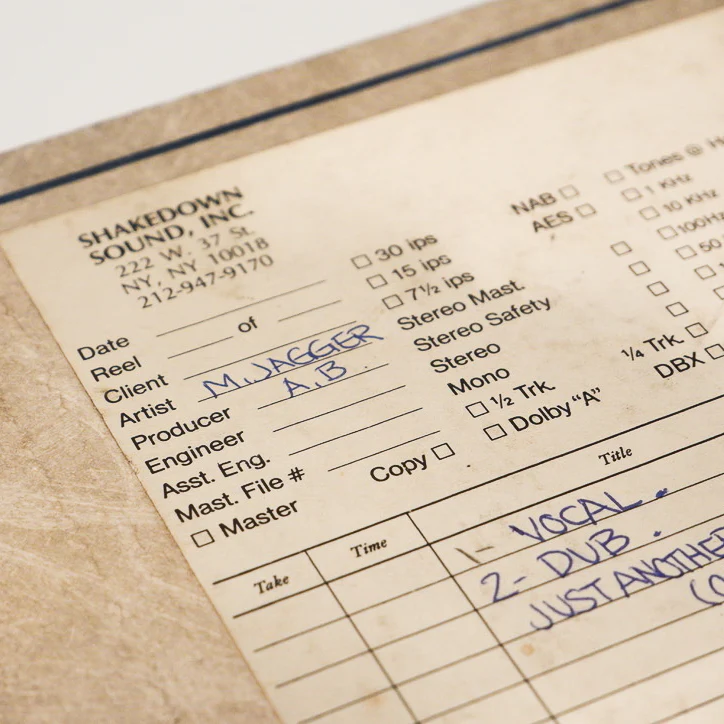 SHAKEDOWN
SOUND, INC.
222 W. 37 St.
NY, NY 10018
212-947-9170
Date
Reel of
Client
Artist M. JAGGER
Producer A.B.
Engineer
Asst. Eng.
Mast. File #
☐ Master Copy ☐
☐ 30 ips
☐ 15 ips
☐ 7½ ips
Stereo Mast.
Stereo Safety
Stereo
Mono
☐ ½ Trk.
☐ Dolby “A”
NAB ☐
AES ☐
¼ Trk. ☐
DBX ☐
☐ Tones @
☐ 1 KHz
☐ 10 KHz
☐ 100H
☐ 50
Take Time Title
1- VOCAL.
2- DUB.
JUST ANOTHE